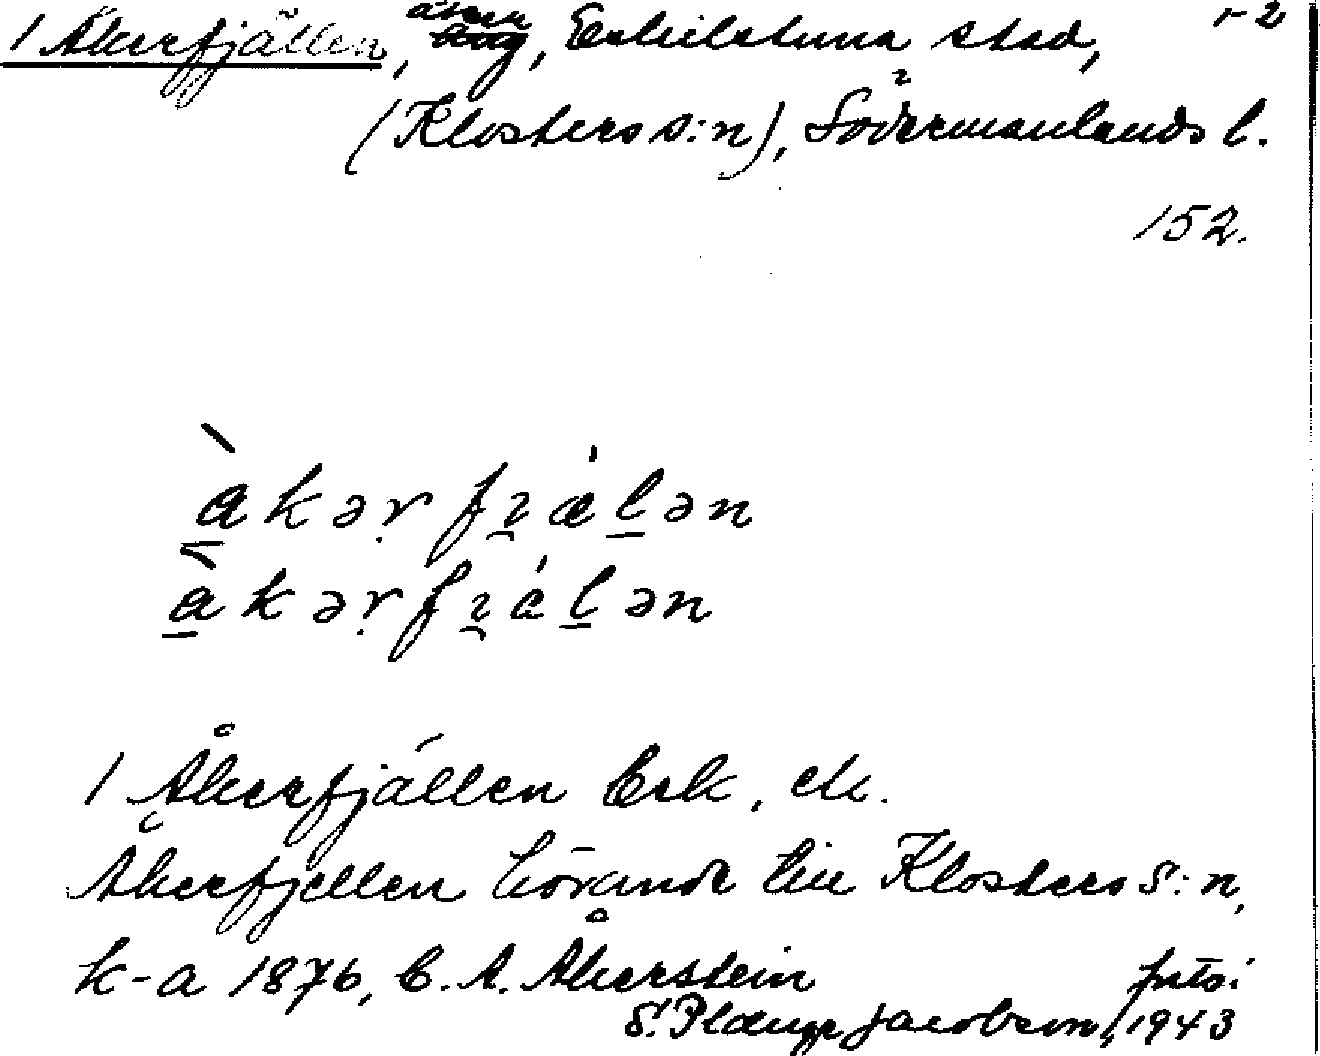 1 Åkerfjällen, åker, Eskilstuna stad, 1-2
(Klosters s:n), Södermanlands l.
152.
àkər fi̯ǽlən
àkər fi̯álən
1 Åkerfjällen Esk, ek.
Åkerfjellen hörande till Klosters s:n,
k-a 1876, C. A. Åkerstein
S. Plænge Jacobson, 1943